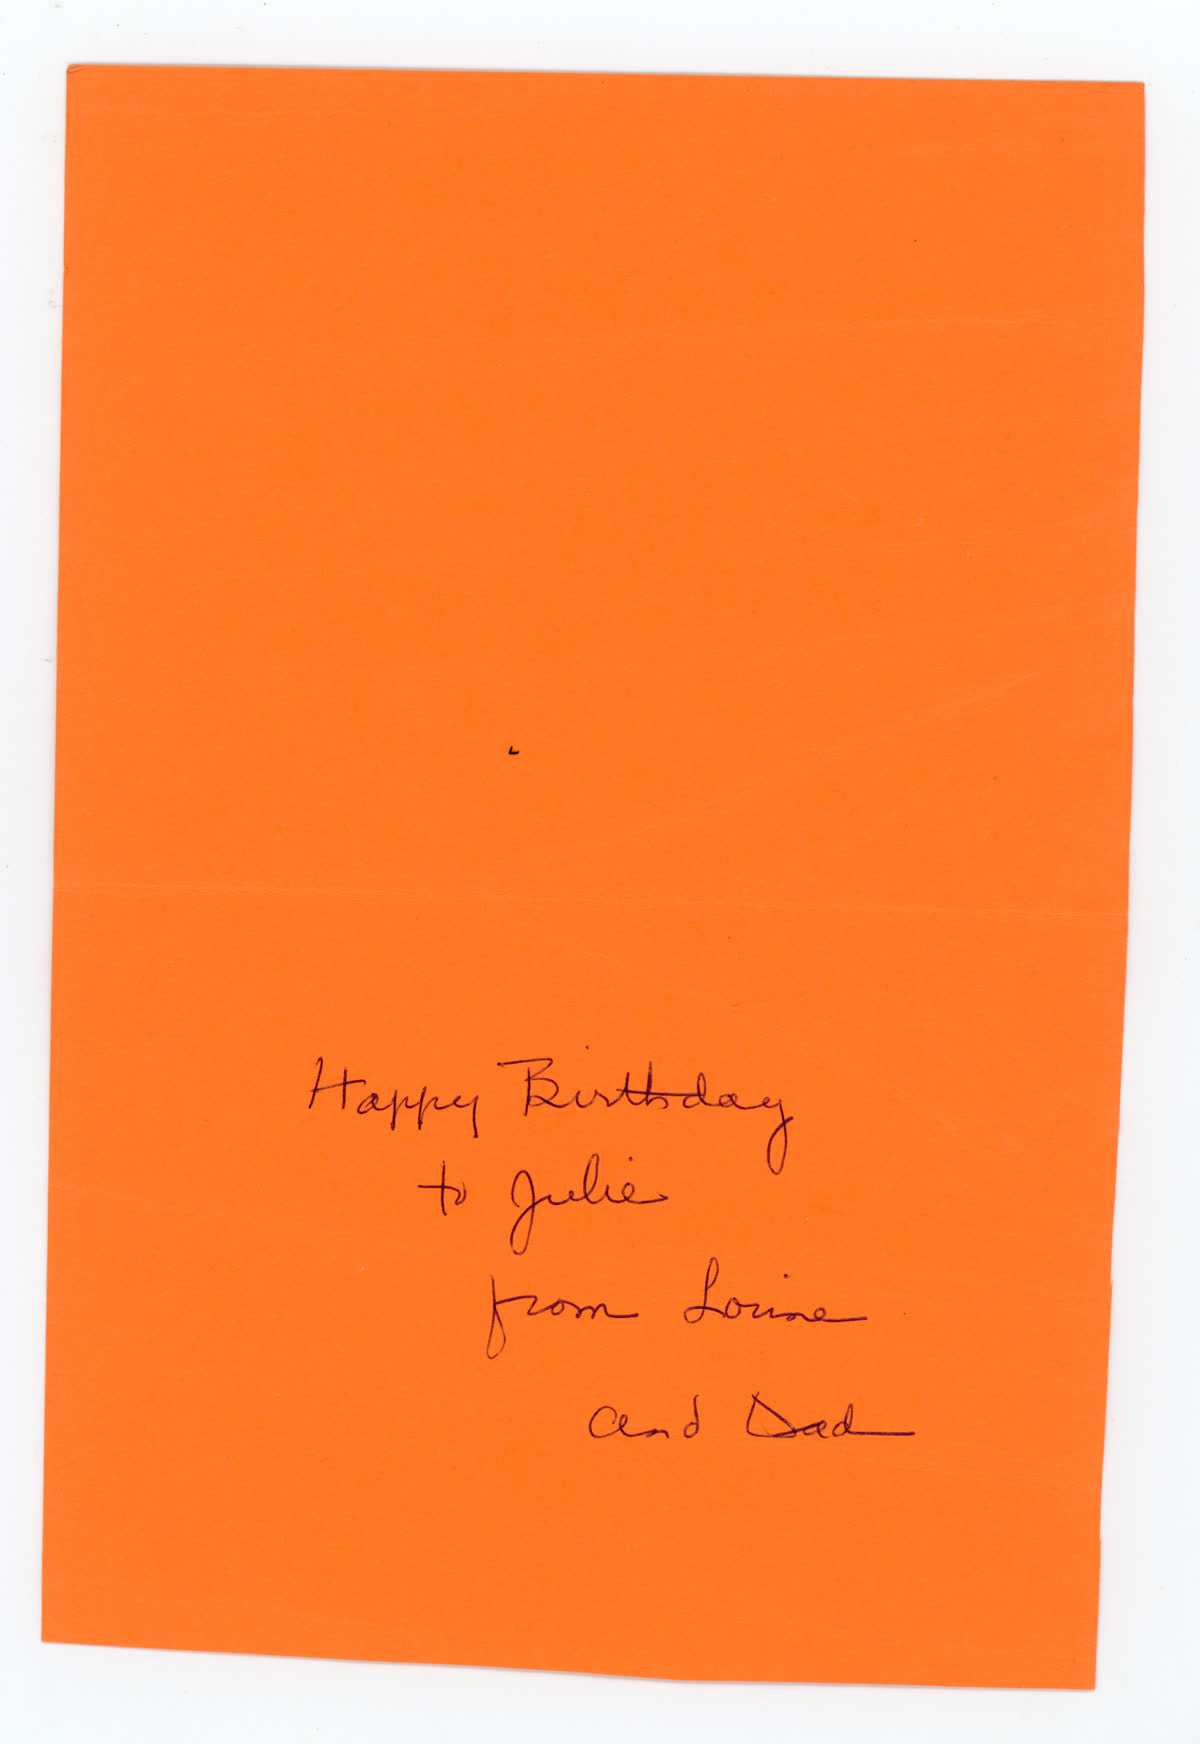 Happy Birthday
to Julie
from Lorine
and Dad